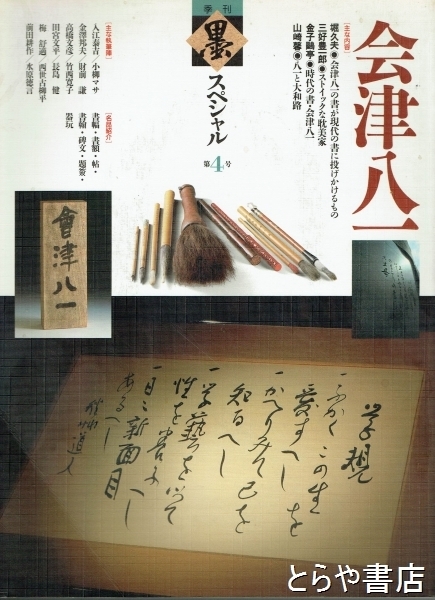 会津八一
[主な内容]
堀久夫●会津八一の書が現代の書に投げかけるもの
三好豊一郎●ストイックな耽美家
金子鷗亭●時代の書・会津八一
山崎馨●八一と大和路
季刊
墨
スペシャル
第4号
[主な執筆陣]
入江泰吉 小柳マサ
金澤邦夫 財前 謙
高橋文彦 竹西寛子
田宮文平 長島 健
梅 舒適 西世古柳平
前田耕作 水原徳言
[名品紹介]
書幅・書額・帖・
書簡・碑文・題簽・
器玩
會津
八一
学規
一ふかくこの生を
愛すへし
一かへりみて己を
知るへし
一学藝を以て
性を養ふへし
一日々新面目
あるへし
秋艸道人
とらや書店